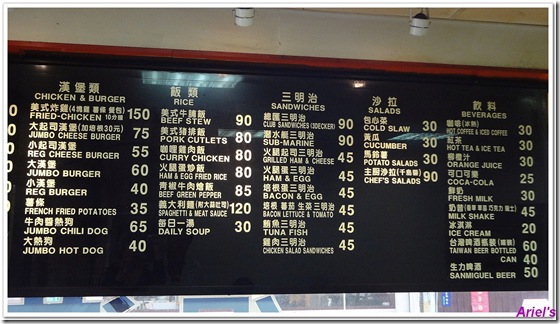 漢堡類
CHICKEN & BURGER
美式炸雞(4塊雞 薯條 餐包)
FRIED-CHICKEN 10分鐘 150
大起司漢堡(加培根30元)
JUMBO CHEESE BURGER 75
小起司漢堡
REG CHEESE BURGER 55
大漢堡
JUMBO BURGER 60
小漢堡
REG BURGER 40
薯條
FRENCH FRIED POTATOES 35
牛肉醬熱狗
JUMBO CHILI DOG 65
大熱狗
JUMBO HOT DOG 40
飯類
RICE
美式牛腩飯
BEEF STEW 90
美式豬排飯
PORK CUTLETS 80
咖哩雞肉飯
CURRY CHICKEN 80
火腿蛋炒飯
HAM & EGG FRIED RICE 80
青椒牛肉燴飯
BEEF GREEN PEPPER 85
義大利麵(附大蒜吐司)
SPAGHETTI & MEAT SAUCE 120
每日一湯
DAILY SOUP 30
三明治
SANDWICHES
總匯三明治
CLUB SANDWICHES (3DECKER) 90
潛水艇三明治
SUB-MARINE 90
火腿起司三明治
GRILLED HAM & CHEESE 45
火腿蛋三明治
HAM & EGG 45
培根蛋三明治
BACON & EGG 45
培根 蕃茄 生菜三明治
BACON LETTUCE & TOMATO 45
鮪魚三明治
TUNA FISH 45
雞肉三明治
CHICKEN SALAD SANDWICHES 45
沙拉
SALADS
包心菜
COLD SLAW 30
黃瓜
CUCUMBER 30
馬鈴薯
POTATO SALADS 30
主廚沙拉(千島醬)
CHEF'S SALADS 90
飲料
BEVERAGES
咖啡(冰熱)
HOT COFFEE & ICED COFFEE 30
紅茶
HOT TEA & ICE TEA 30
柳橙汁
ORANGE JUICE 30
可口可樂
COCA-COLA 25
鮮奶
FRESH MILK 30
奶昔
MILK SHAKE 45
冰淇淋
ICE CREAM 20
台灣啤酒瓶裝(罐裝)
TAIWAN BEER BOTTLED 60
CAN 40
生力啤酒
SANMIGUEL BEER 50
Ariel's